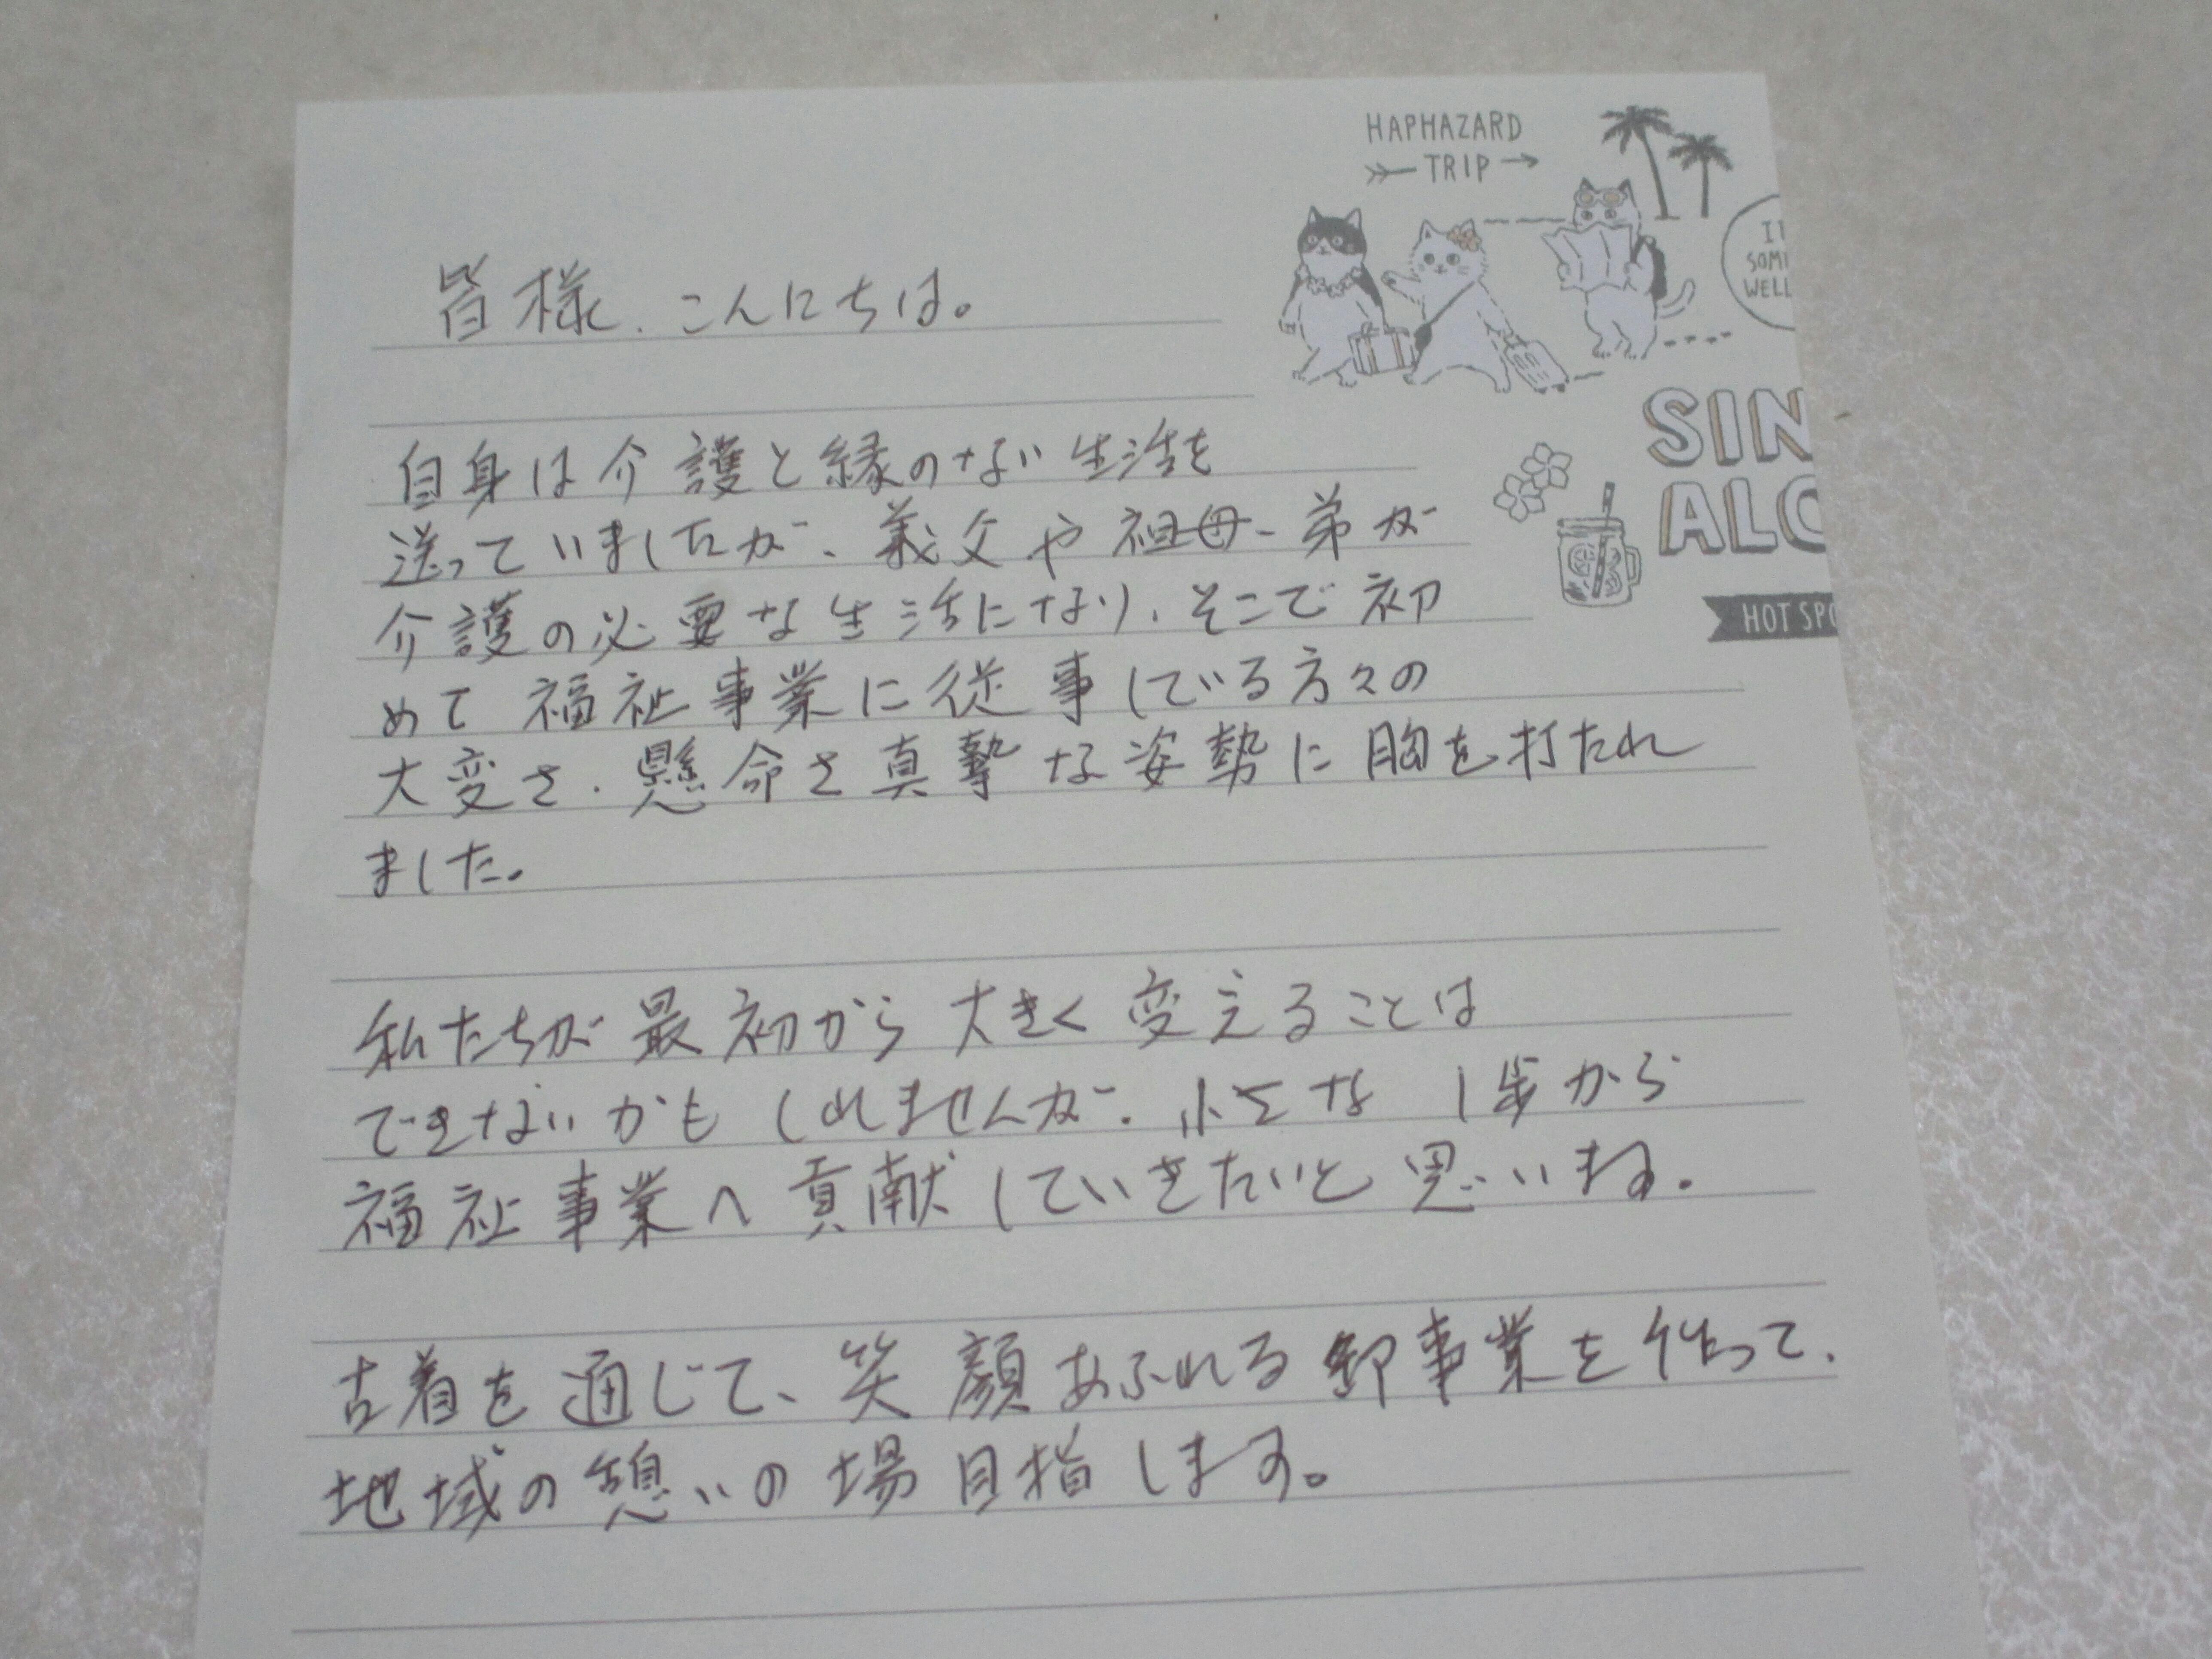 HAPHAZARD
TRIP
皆様、こんにちは。
SIN
ALO
HOT SPO
自身は介護と縁のない生活を
送っていましたが、義父や祖母、弟が
介護の必要な生活になり、そこで初
めて福祉事業に従事している方々の
大変さ、懸命さ真摯な姿勢に胸を打たれ
ました。
私たちが最初から大きく変えることは
できないかもしれませんが、小さな1歩から
福祉事業へ貢献していきたいと思います。
古着を通じて、笑顔あふれる卸事業を作って、
地域の憩いの場目指します。